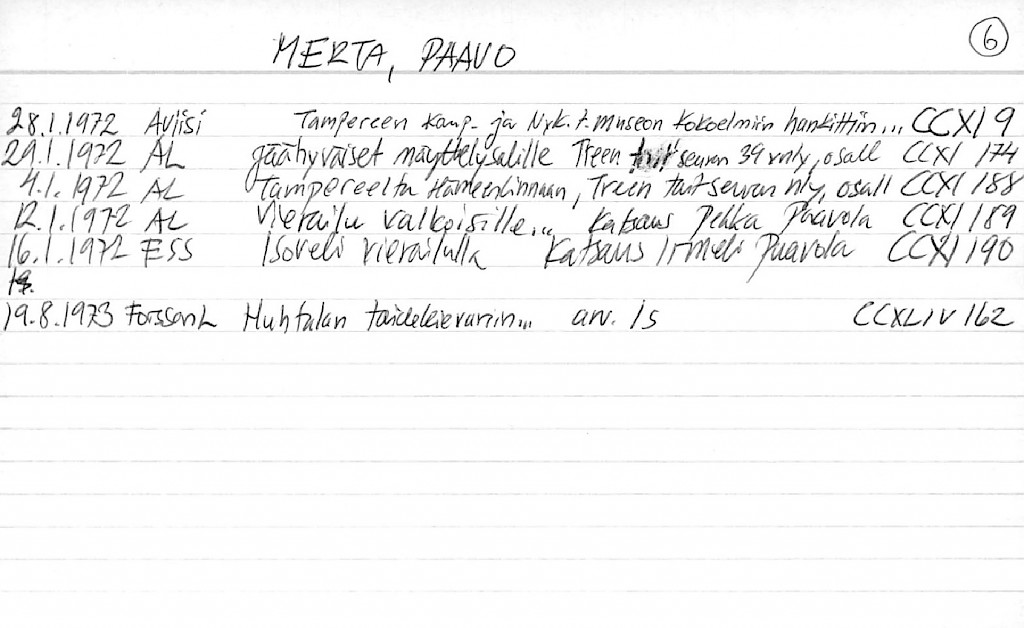 6
MERTA, PAAVO
28.1.1972 Aviisi Tampereen kaup. ja Nyk.t. museon kokoelmiin hankittiin... CCXI 9
29.1.1972 AL Jäähyväiset näyttelysalille Treen tait seuran 39 vnly, osall CCXI 174
4.1.1972 AL Tampereelta Hämeenlinnaan, Treen taitseuran nly, osall CCXI 188
12.1.1972 AL Vierailu valkoisille... Katsaus Pekka Paavola CCXI 189
16.1.1972 ESS Isoveli vierailulla Katsaus Irmeli Paavola CCXI 190
19.8.1973 ForssanL Huhtalan taidekievariin... arv. IS CCXLIV 162